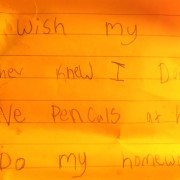 wish my
knew I Don
ve Pencals at
Do my homew